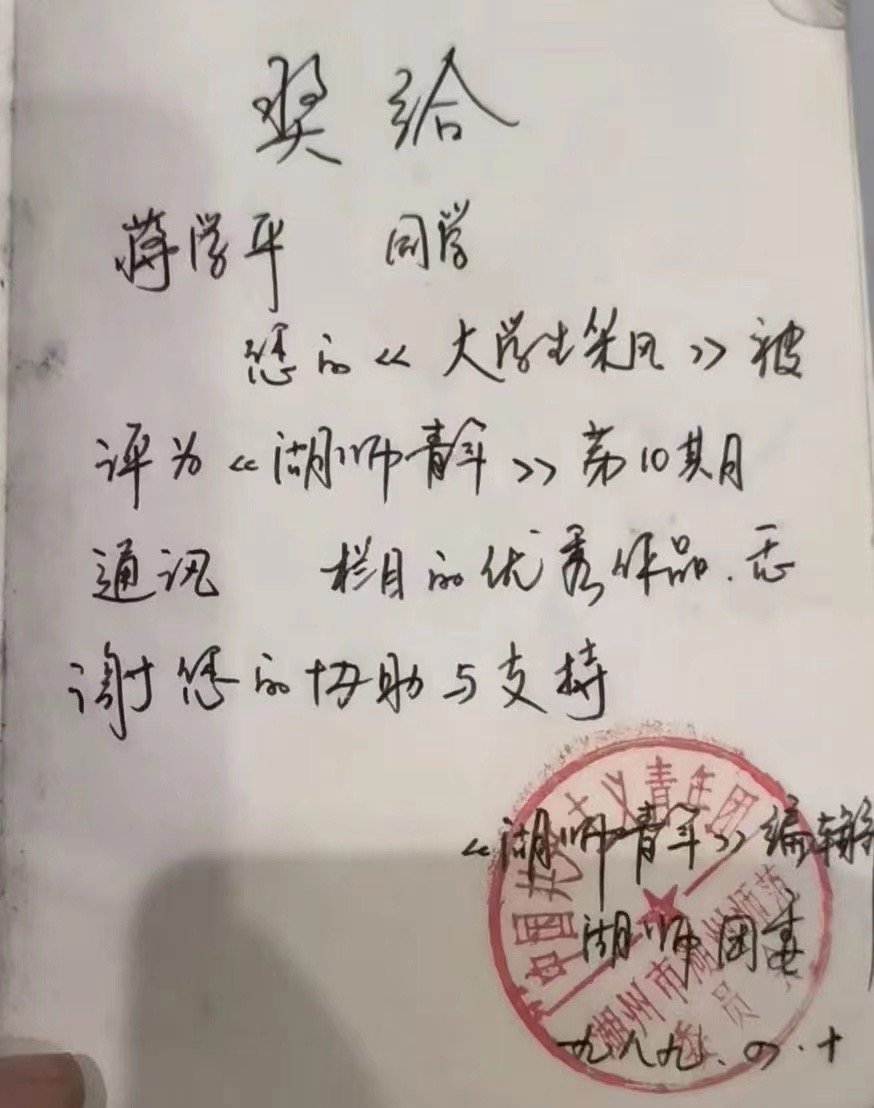 奖给
蒋学平 同学
您的《大学生采风》被
评为《湖师青年》第10期月
通讯 栏目的优秀作品.忝
谢您的协助与支持
《湖师青年》编辑
湖师团委
一九八九.四.十
中国共产主义青年团
湖州市湖州师范
委员